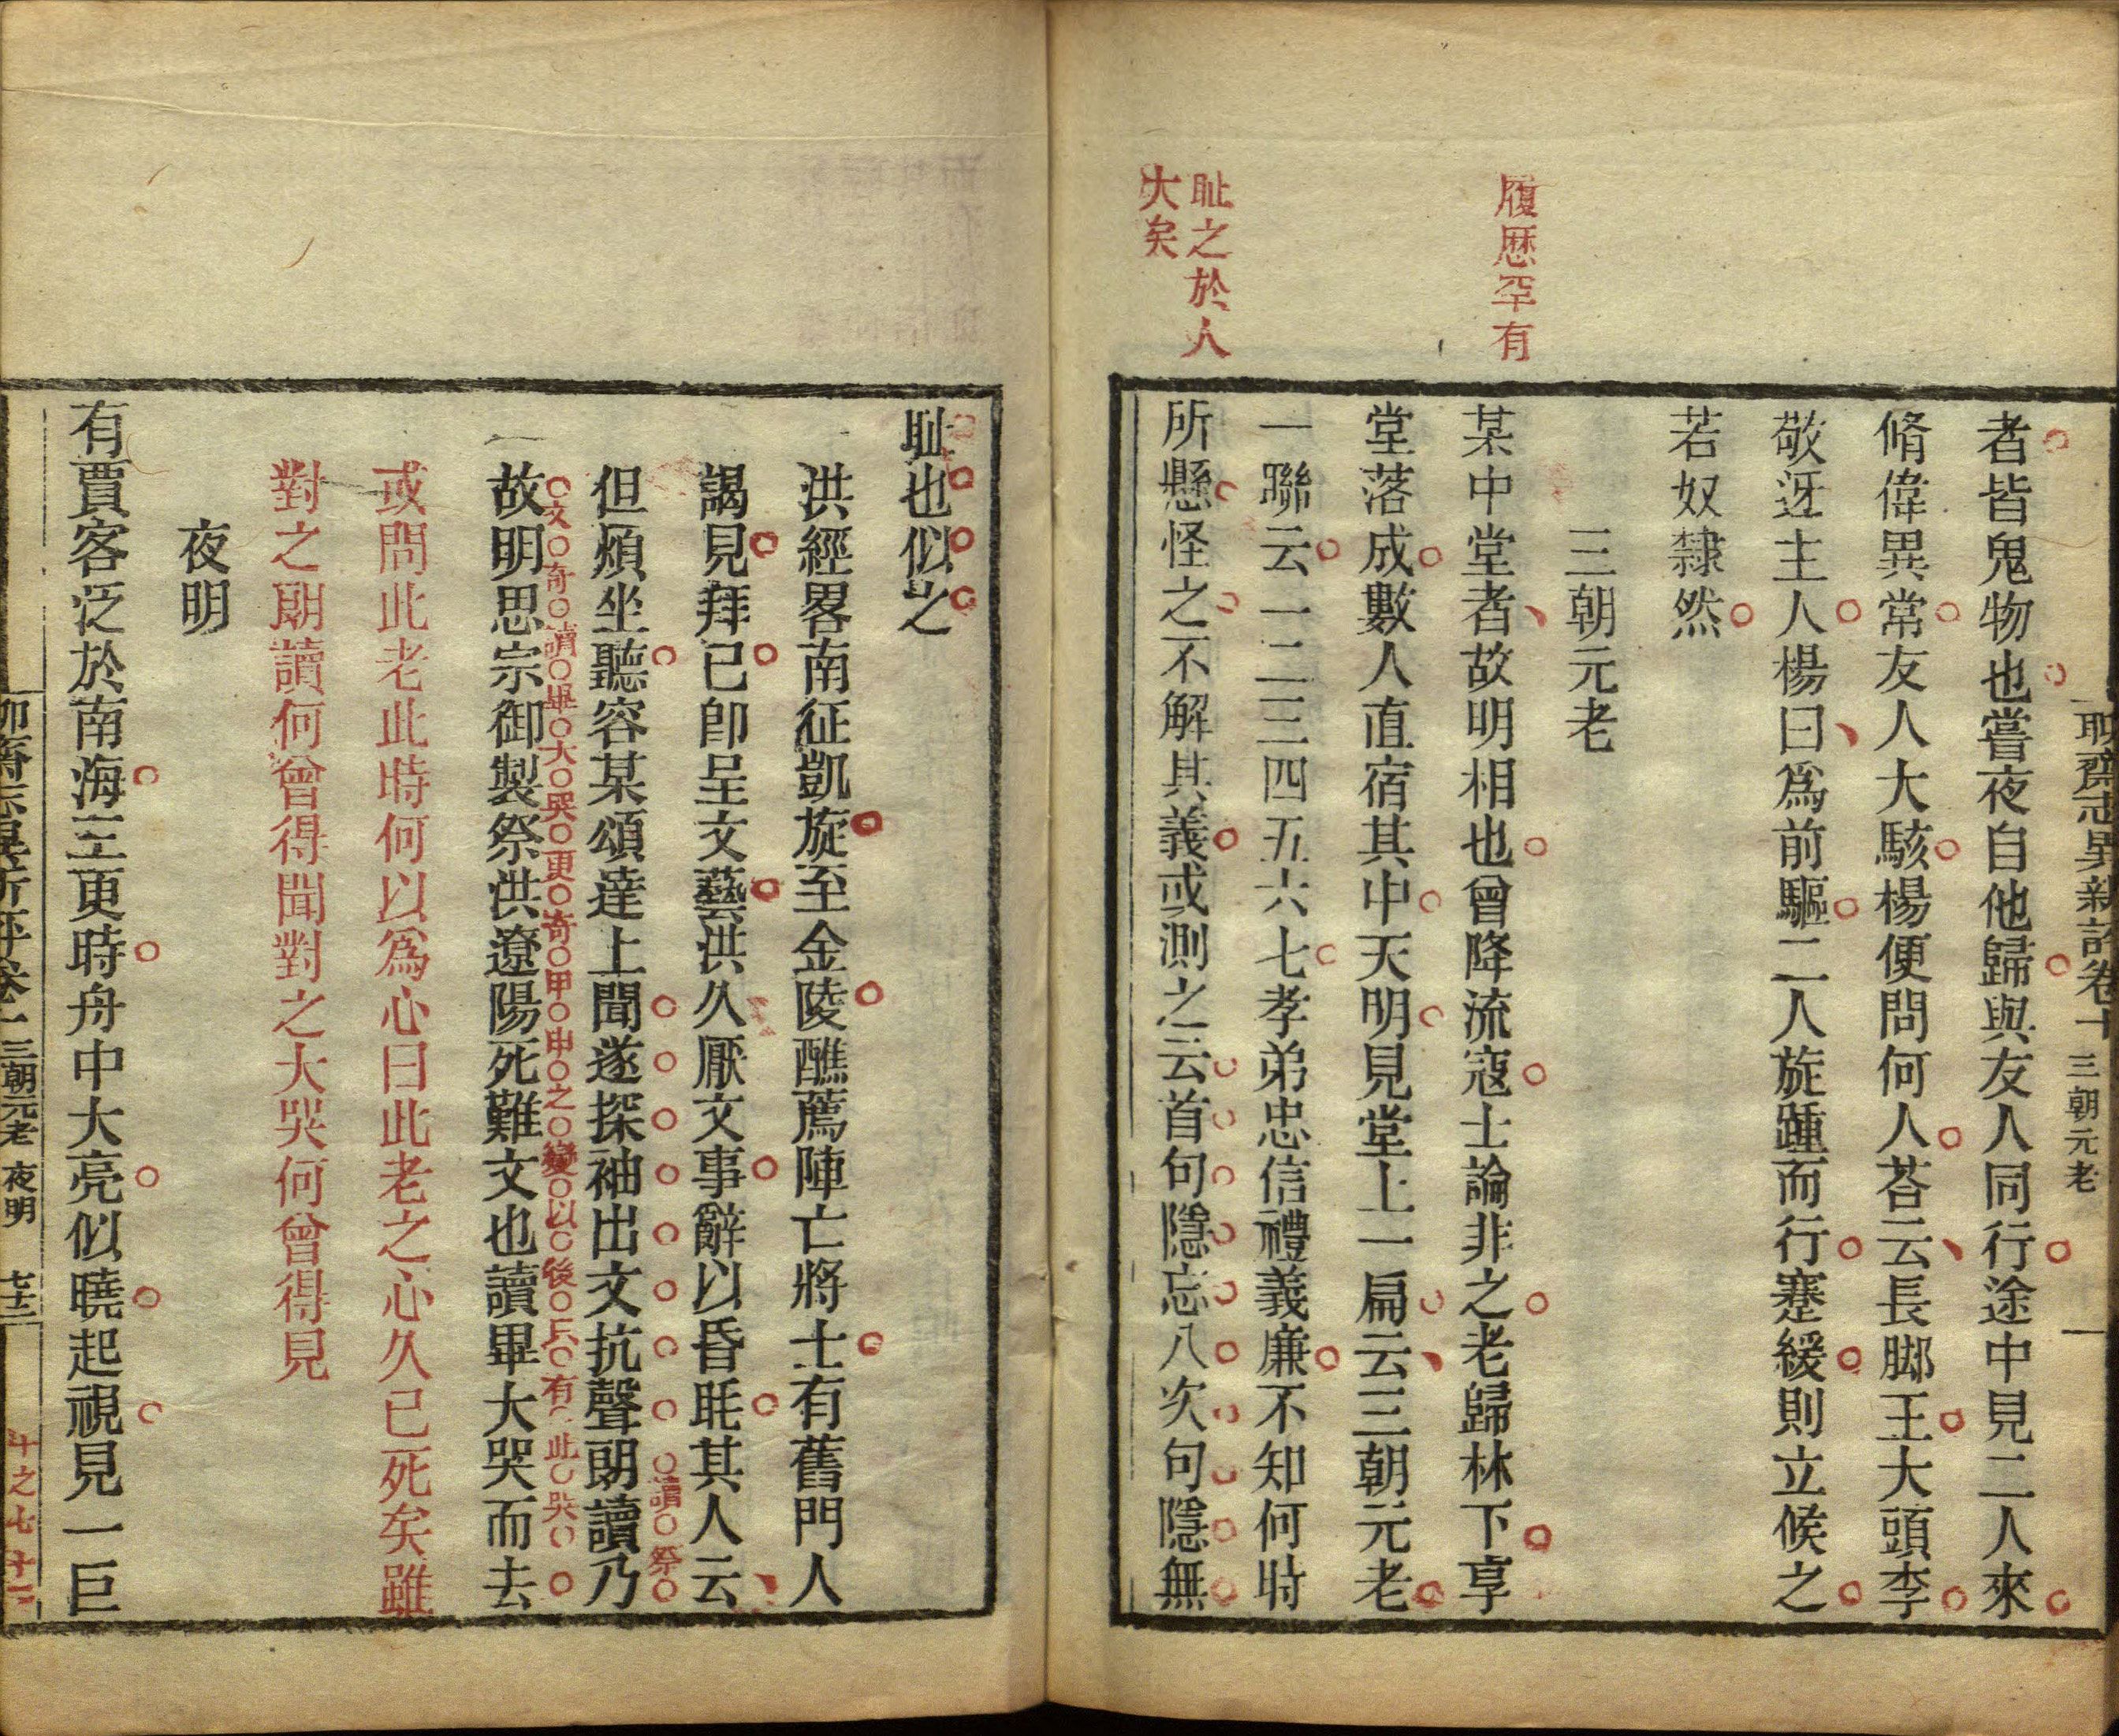 聊齋志異新評卷十 三朝元老 一
者皆鬼物也嘗夜自他歸與友人同行途中見二人來
脩偉異常友人大駭楊便問何人荅云長脚王大頭李
敬迓主人楊曰爲前驅二人旋踵而行蹇緩則立候之
若奴隸然
三朝元老
履歷罕有
某中堂者故明相也曾降流寇士論非之老歸林下享
堂落成數人直宿其中天明見堂上一扁云三朝元老
一聯云一二三四五六七孝弟忠信禮義廉不知何時
耻之於人
大矣
所懸怪之不解其義或測之云首句隱忘八次句隱無
耻也似之
洪經畧南征凱旋至金陵醮薦陣亡將士有舊門人
謁見拜已卽呈文藝洪久厭文事辭以昏眊其人云
但煩坐聽容某頌達上聞遂探袖出文抗聲朗讀乃
讀祭
文奇讀畢大哭更奇甲申之變以後只有此哭
故明思宗御製祭洪遼陽死難文也讀畢大哭而去
或問此老此時何以爲心曰此老之心久已死矣雖
對之朗讀何曾得聞對之大哭何曾得見
夜明
有賈客泛於南海三更時舟中大亮似曉起視見一巨
聊齋志異新評卷十 三朝元老 夜明 七十三
十之七十三